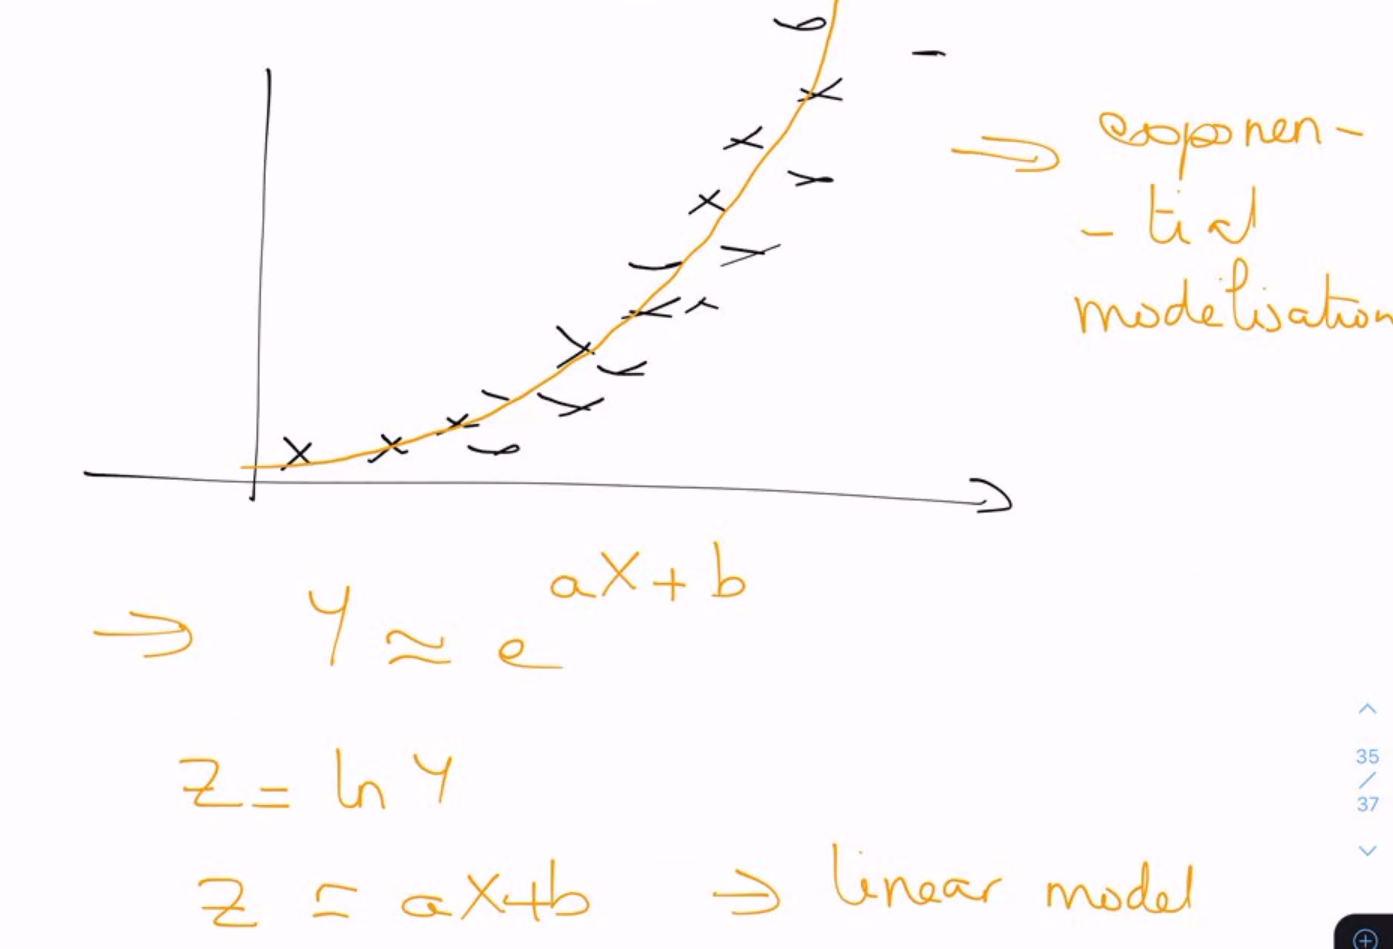 ⇒ exponen-
-tial
modélisation
⇒ Y ≈ e^{aX+b}
Z = ln Y
Z = aX+b ⇒ linear model
35
/
37